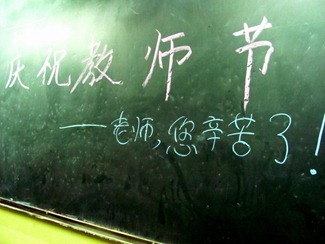 庆祝教师节
——老师,您辛苦了!